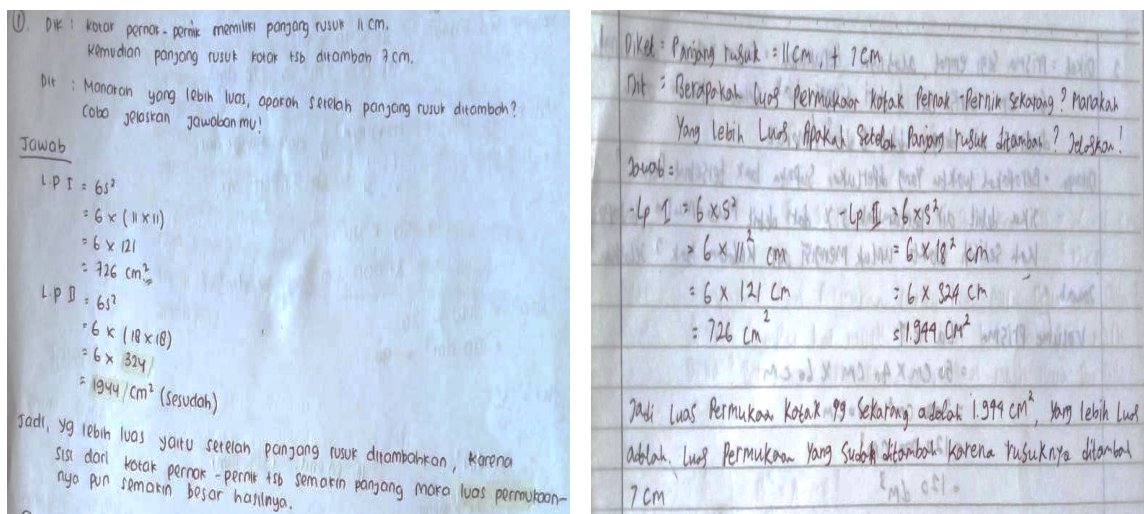 ①. Dik : kotak pernak - pernik memiliki panjang rusuk 11 cm.
Kemudian panjang rusuk kotak tsb ditambah 7 cm.
Dit : Manakah yang lebih luas, apakah setelah panjang rusuk ditambah?
Coba jelaskan jawabanmu!
Jawab
L.P I = 6s²
= 6 × (11×11)
= 6 × 121
= 726 cm²
L.P II = 6s²
= 6 × (18×18)
= 6 × 324
= 1944 cm² (sesudah)
Jadi, yg lebih luas yaitu setelah panjang rusuk ditambahkan, karena
sisi dari kotak pernak - pernik tsb semakin panjang maka luas permukaan-
nya pun semakin besar hasilnya.
1 Diket = Panjang rusuk = 11 cm, + 7 cm
Dit = Berapakah luas permukaan kotak pernak-pernik sekarang? Manakah
Yang lebih Luas, Apakah setelah Panjang rusuk ditambah? Jelaskan!
Jawab =
-Lp I = 6 × s² -Lp II = 6 × s²
= 6 × 11² cm = 6 × 18² cm
= 6 × 121 cm = 6 × 324 cm
= 726 cm² = 1.944 cm²
Jadi Luas Permukaan Kotak yg sekarang adalah 1.944 cm², yang lebih Luas
adalah Luas Permukaan yang sudah ditambah karena rusuknya ditambah
7 cm